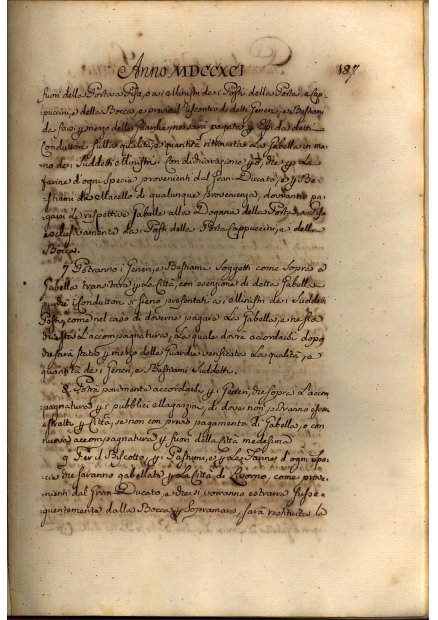 Anno MDCCXCI 187
fuori della Porta a Pisa, o a i Ministri de i Posti della Porta a Cap-
puccini, e della Bocca, e previo il riscontro di detti Generi, e Bestiami
da farsi p mezzo delle Guardie, ne sarà pagata p essi da detti
Conduttori sulla qualità, e quantità ritrovata la Gabella in ma-
no dei Suddetti Ministri. Con dichiarazione però, che p le
farine d'ogni specie provenienti dal Gran-Ducato, e p Be-
stiami da Macello di qualunque provenienza, dovranno pa-
garsi le rispettive Gabelle alla Dogana della Porta a Pisa
esclusivamente da Posti della Porta Cappuccini, e della
Bocca.
7 Potranno i Generi, e Bestiami Soggetti come Sopra a
Gabella transitare p la Città, con esenzione di detta Gabella
purchè i Conduttori si sieno presentati a i Ministri de i Suddetti
Posti, come nel caso di doverne pagare la Gabella, e ne sia
chiesta l'accompagnatura, la quale dovrà accordarsi dopo
che sarà stata p mezzo delle Guardie verificata la qualità, e
quantità de i Generi, e Bestiami Suddetti.
8 Potrà parimente accordarsi p i Generi, che sopra l'accom-
pagnatura p i pubblici Magazzini, di dove non potranno essere
estratti p Città, se non con previo pagamento di Gabella, o con
nuova accompagnatura p fuori della Città medesima
9 Per il Biscotto, p i Pastumi, e p le Farine d'ogni Spe-
cie che saranno gabellate p la Città di Livorno, come prove-
nienti dal Gran Ducato, e che si vorranno estrarre susse-
guentemente dalla Bocca p Sopramare, sarà restituita la